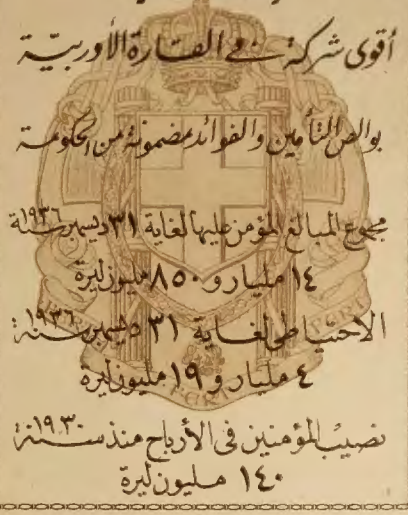 أقوى شركة في القارة الأوربيّة
بوالص التأمين والفوائد مضمونة من الحكومة
مجموع المبالغ المؤمن عليها لغاية ٣١ ديسمبر سنة ١٩٣٦
١٤ مليار و ٨٥٠ مليون ليرة
الاحتياطي لغاية ٣١ ديسمبر سنة ١٩٣٦
٤ مليار و ١٩ مليون ليرة
نصيب المؤمنين فى الأرباح منذ سنة ١٩٣٠
١٤٠ مليون ليرة
FERT